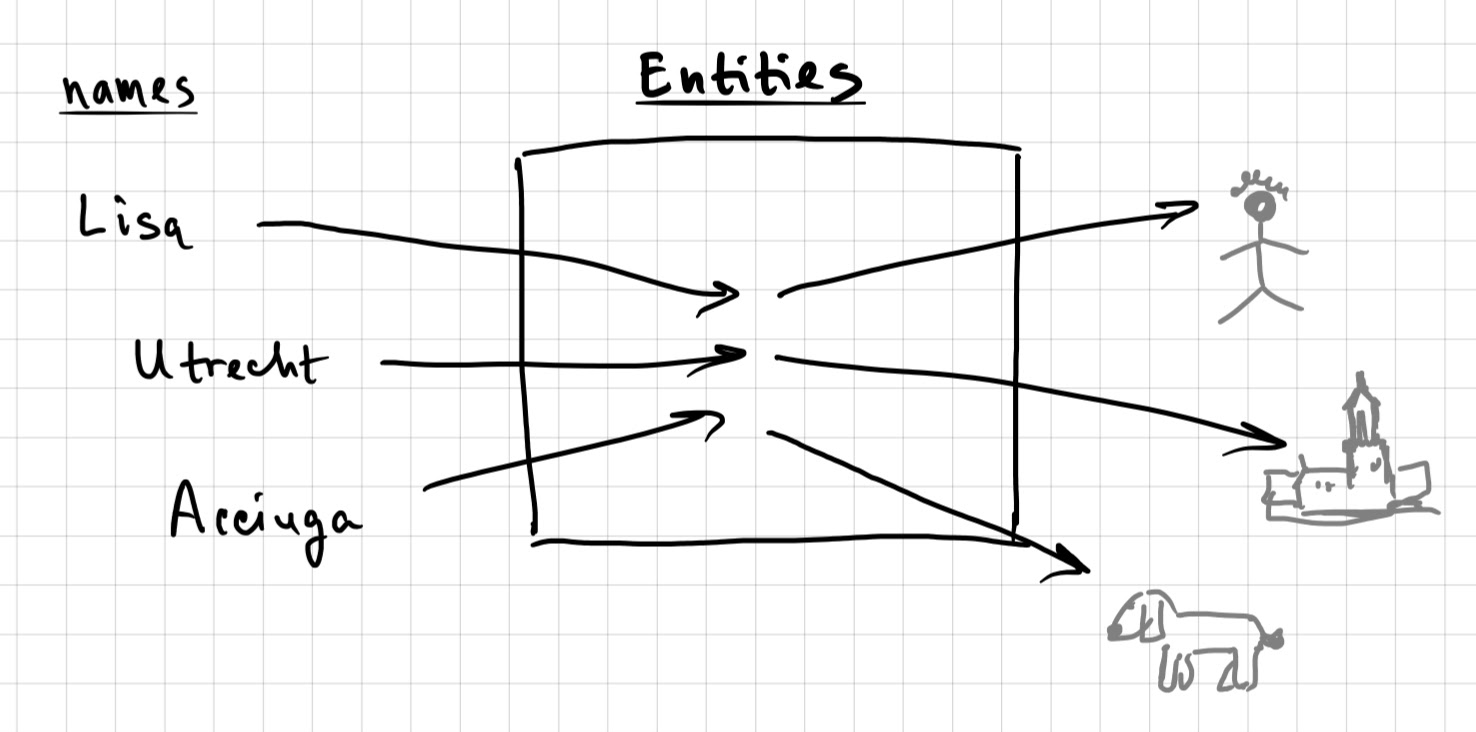 names
Entities
Lisa
Utrecht
Acciuga